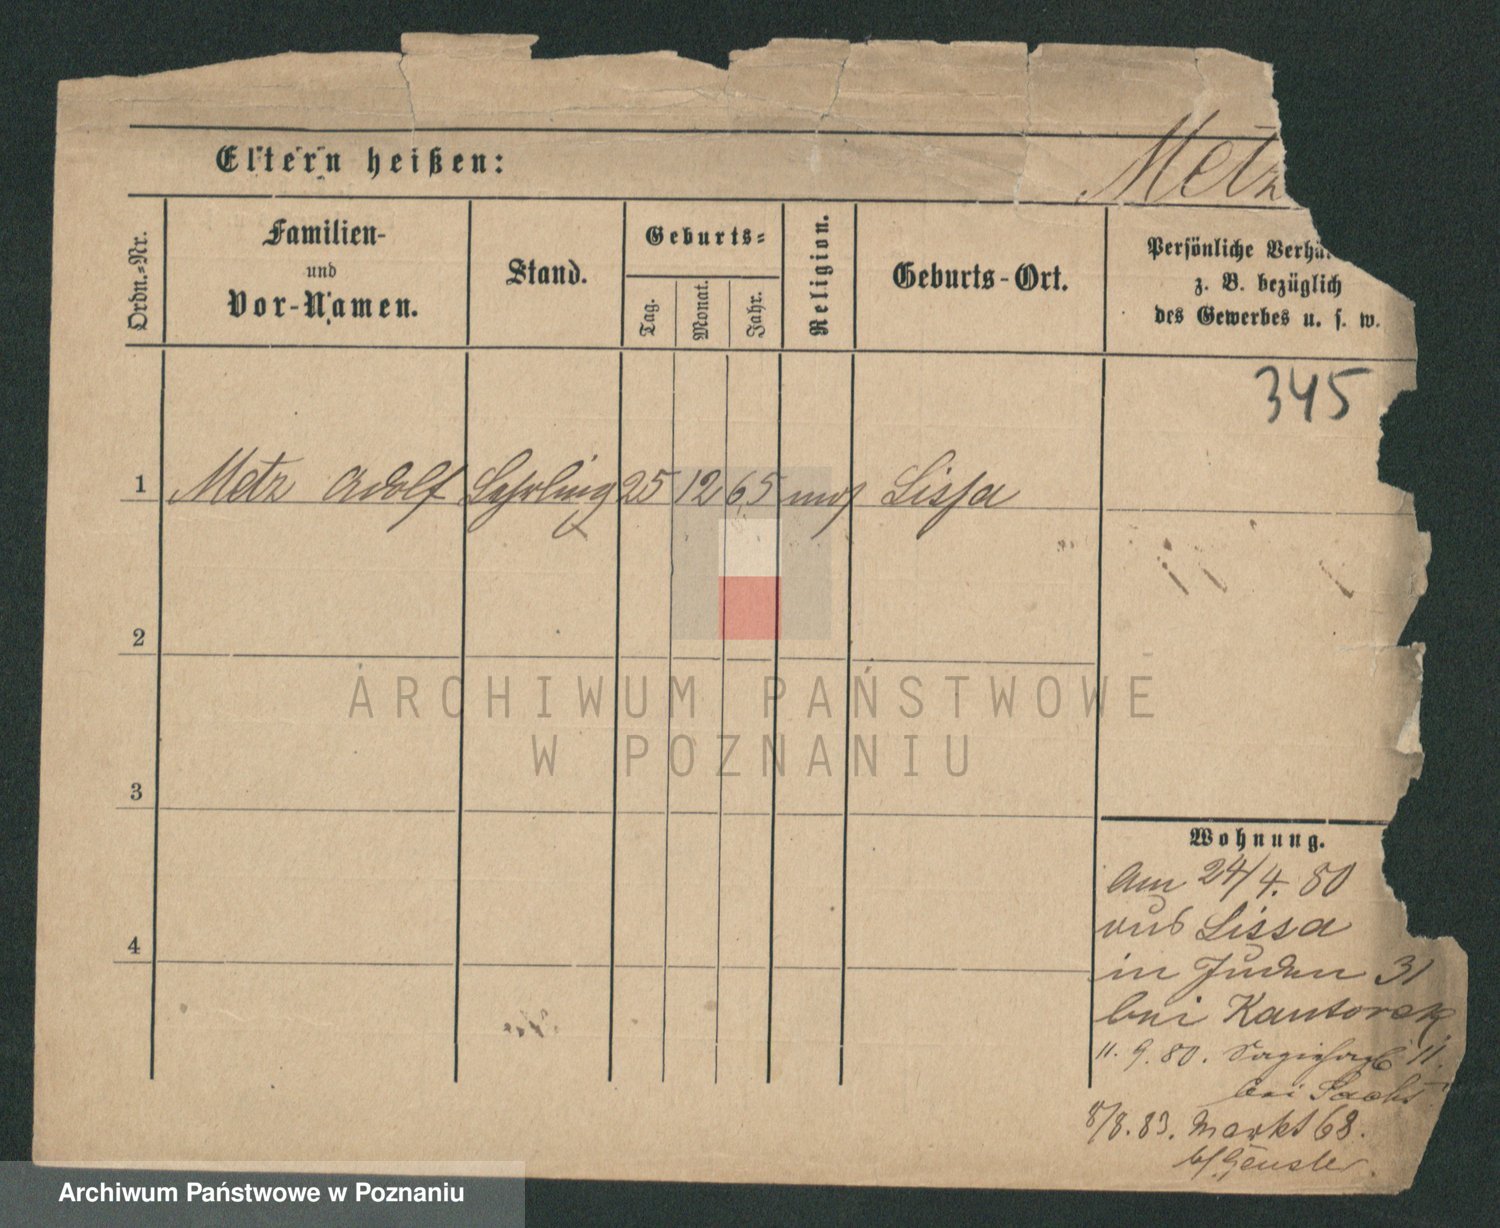 Eltern heißen:
Metz
Ordn.-Nr.
Familien-
und
Vor-Namen.
Stand.
Geburts-
Tag.
Monat.
Jahr.
Religion.
Geburts-Ort.
Persönliche Verhä
z. B. bezüglich
des Gewerbes u. s. w.
345
1 Metz Adolf Lehrling 25 12 65 mos Lissa
2
3
4
Wohnung.
Am 24/4. 80
aus Lissa
in Juden 31
bei Kantorek
11. 9. 80. 11.
bei Sachs
8/8. 83. Markt 68.
b/
ARCHIWUM PAŃSTWOWE
W POZNANIU
Archiwum Państwowe w Poznaniu